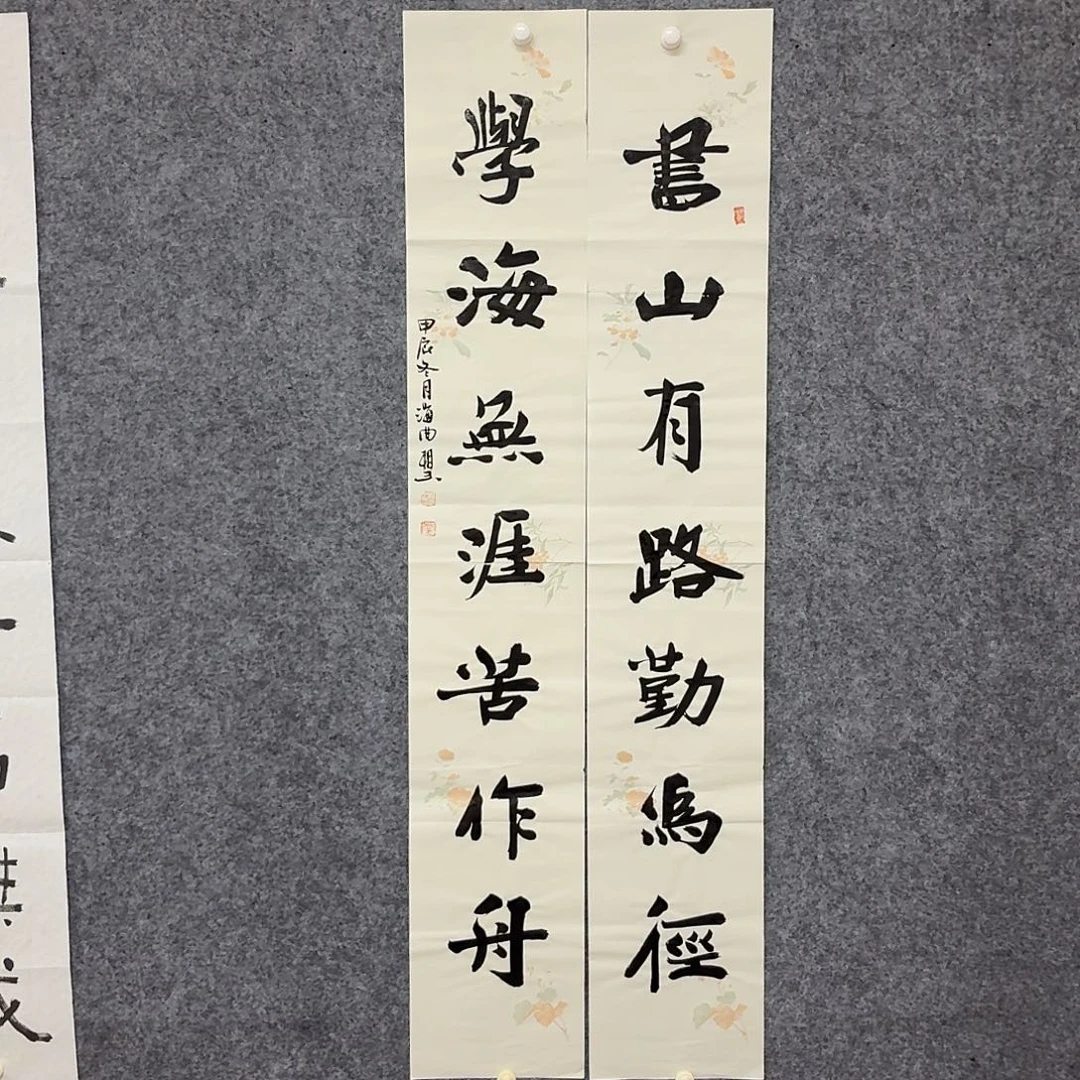 書山有路勤為徑
學海無涯苦作舟
甲辰冬月海曲